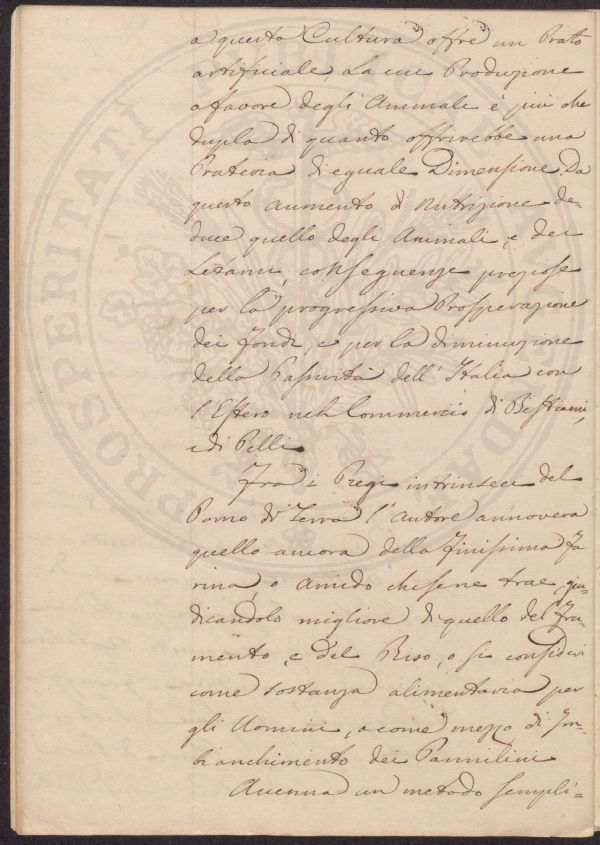 a questa Cultura offre un Prato
artificiale La cui Produzione
a favore degli Animale è più che
dupla di quanto offrirebbe una
Prateria di eguale Dimensione Da
questo aumento di Nutrizione de=
duce quello degli Animali, e dei
Letami, conseguenze preziose
per la progressiva Prosperazione
dei fondi, e per la diminuzione
della Passività dell' Italia con
l'Estero nel Commercio di Bestiami,
e di Pelli
Fra i Pregi intrinseci del
Pomo di Terra l'Autore annovera
quello ancora della Finissima Fa
rina, o Amido che se ne trae, giu=
dicandolo migliore di quello del Fru=
mento, e del Riso, o si consideri
come sostanza alimentaria per
gli Uomini, o come mezzo di Im=
bianchimento dei Pannilini
Accenna un metodo sempli=
PROSPERITATI PUBLICAE AUGENDAE